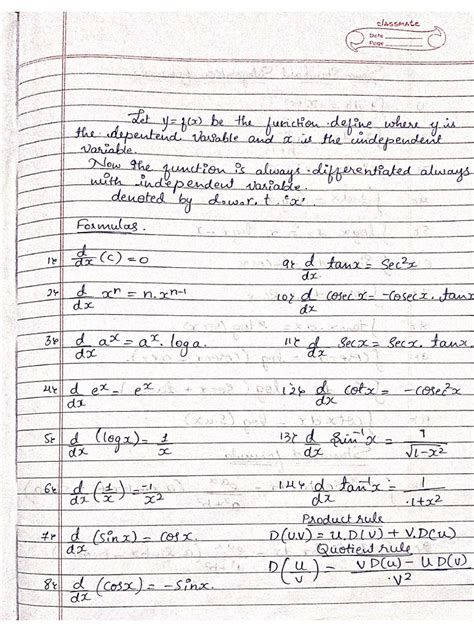 classmate
Date
Page
Let y=f(x) be the function define where y is
the dependend variable and x is the independent
variable.
Now the function is always differentiated always
with independent variable.
denoted by d.w.r.t. 'x'
Formulas.
1. d/dx (c) = 0
2. d/dx xⁿ = n.xⁿ⁻¹
3. d/dx aˣ = aˣ. log a.
4. d/dx eˣ = eˣ
5. d/dx (log x) = 1/x
6. d/dx (1/x) = -1/x²
7. d/dx (sin x) = cos x.
8. d/dx (cos x) = -sin x.
9. d/dx tan x = sec²x
10. d/dx cosec x = -cosec x. tan x
11. d/dx sec x = sec x. tan x.
12. d/dx cot x = -cosec²x
13. d/dx sin⁻¹x = 1/√1-x²
14. d/dx tan⁻¹x = 1/1+x²
Product rule
D(u.v) = u.D(v) + v.D(u)
Quotient rule
D(u/v) = vD(u) - uD(v)/v²